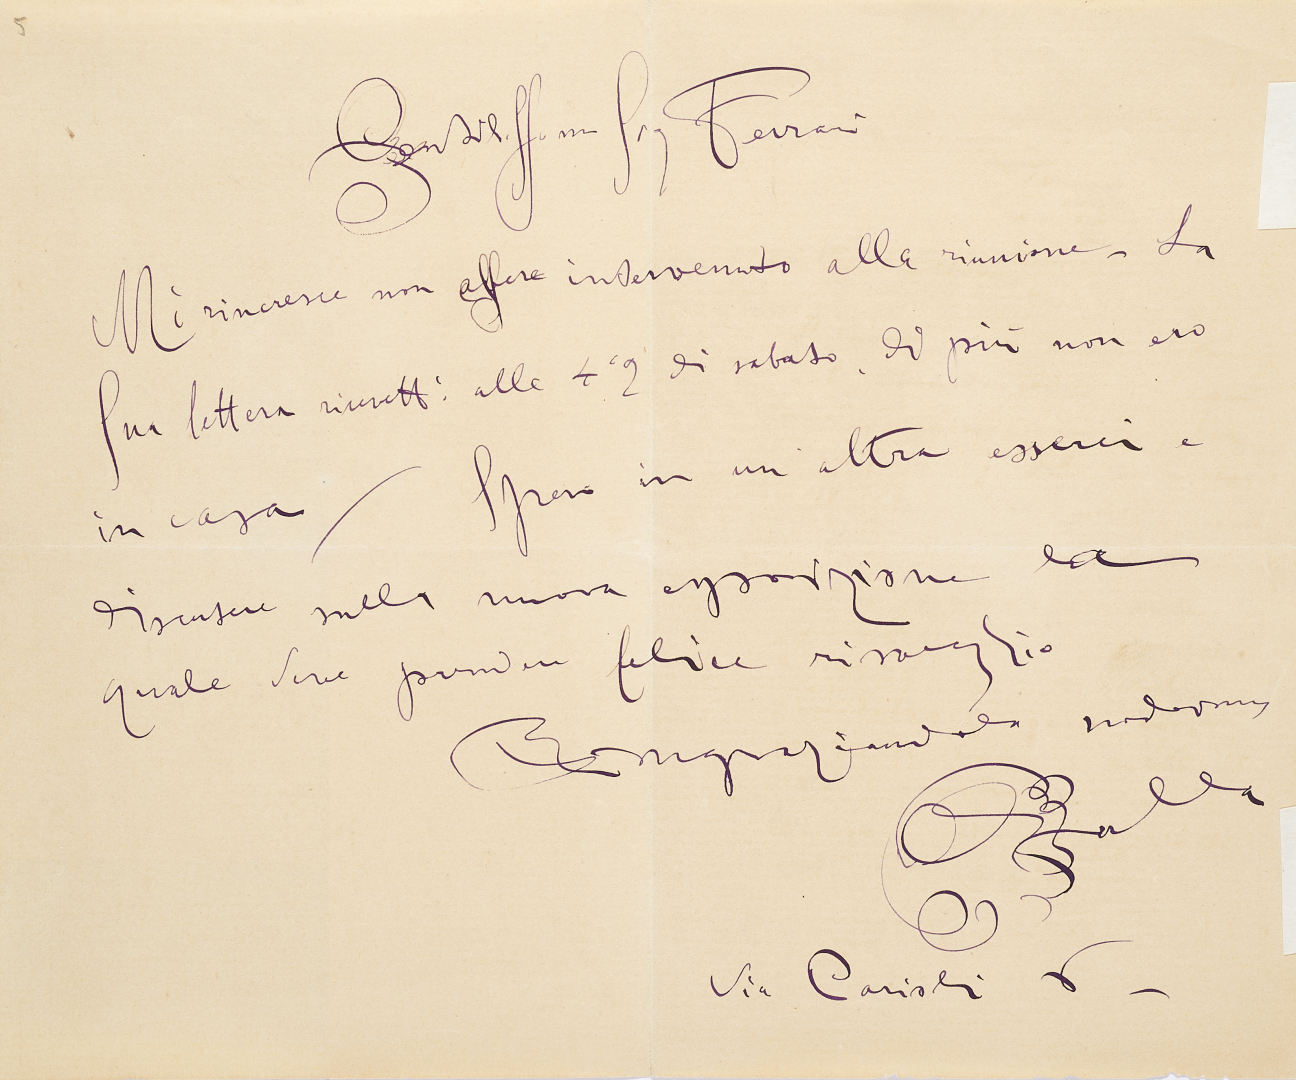 5
Gentiliſſimo Sig Ferrari
Mi rincresce non eſsere intervenuto alla riunione – La
Sua lettera ricevetti alle 4 di sabato, di più non ero
in casa Spero in un'altra esserci e
discutere sulla nuova esposizione la
quale deve prendere felice risveglio
Ringraziandola
Balla
Via Parioli 6 –